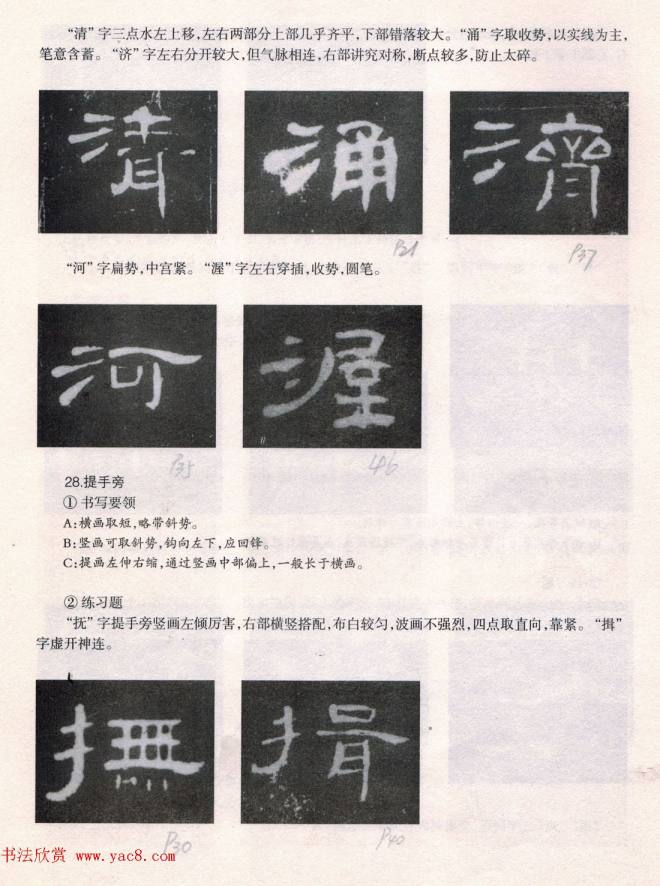 “清”字三点水左上移，左右两部分上部几乎齐平，下部错落较大。“涌”字取收势，以实线为主，
笔意含蓄。“济”字左右分开较大，但气脉相连，右部讲究对称，断点较多，防止太碎。
清 涌 濟
P21 P37
“河”字扁势，中宫紧。“渥”字左右穿插，收势，圆笔。
河 渥
P35 46
28.提手旁
①书写要领
A：横画取短，略带斜势。
B：竖画可取斜势，钩向左下，应回锋。
C：提画左伸右缩，通过竖画中部偏上，一般长于横画。
②练习题
“抚”字提手旁竖画左倾厉害，右部横竖搭配，布白较匀，波画不强烈，四点取直向，靠紧。“揖”
字虚开神连。
撫 揖
P30 P40
书法欣赏 www.yac8.com